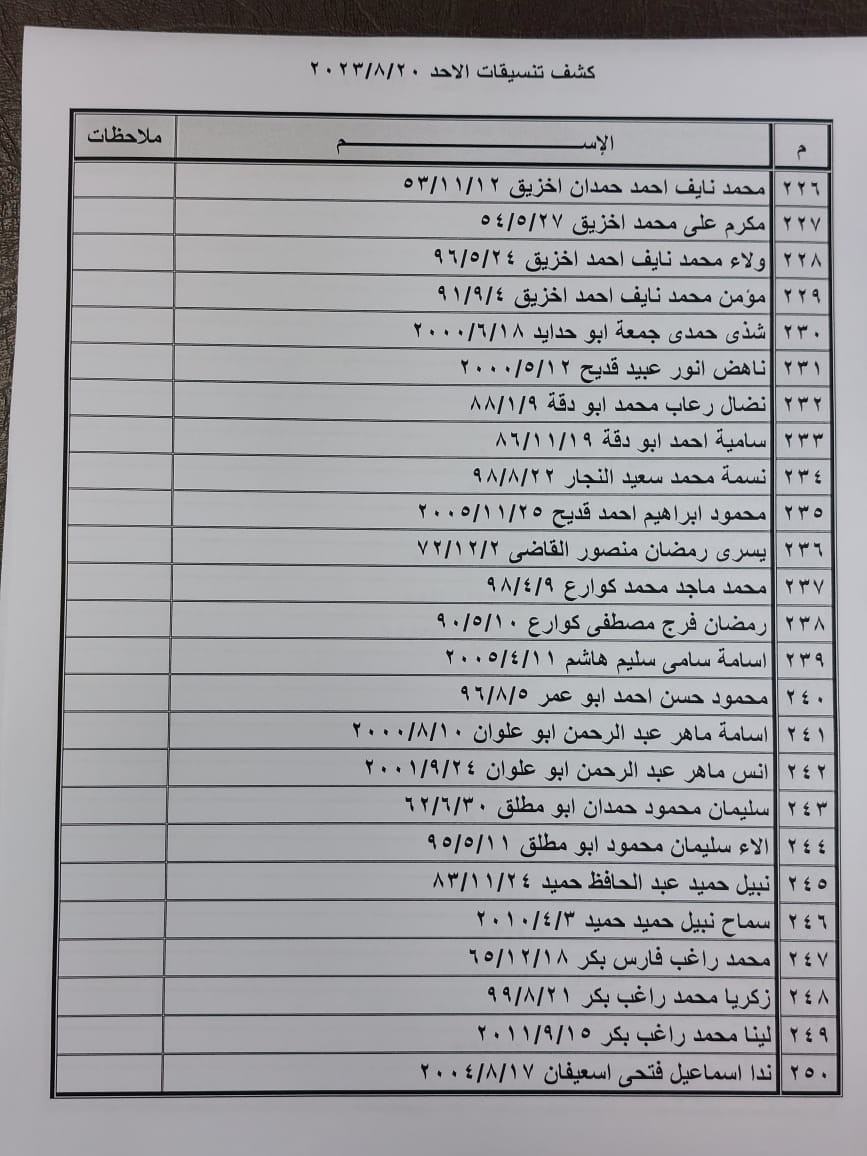 كشف تنسيقات الاحد ٢٠٢٣/٨/٢٠
م الإســـــــــــم ملاحظات
٢٢٦ محمد نايف احمد حمدان اخزيق ٥٣/١١/١٢
٢٢٧ مكرم على محمد اخزيق ٥٤/٥/٢٧
٢٢٨ ولاء محمد نايف احمد اخزيق ٩٦/٥/٢٤
٢٢٩ مؤمن محمد نايف احمد اخزيق ٩١/٩/٤
٢٣٠ شذى حمدى جمعة ابو حدايد ٢٠٠٠/٦/١٨
٢٣١ ناهض انور عبيد قديح ٢٠٠٠/٥/١٢
٢٣٢ نضال رعاب محمد ابو دقة ٨٨/١/٩
٢٣٣ سامية احمد ابو دقة ٨٦/١١/١٩
٢٣٤ نسمة محمد سعيد النجار ٩٨/٨/٢٢
٢٣٥ محمود ابراهيم احمد قديح ٢٠٠٥/١١/٢٥
٢٣٦ يسرى رمضان منصور القاضى ٧٢/١٢/٢
٢٣٧ محمد ماجد محمد كوارع ٩٨/٤/٩
٢٣٨ رمضان فرج مصطفى كوارع ٩٠/٥/١٠
٢٣٩ اسامة سامى سليم هاشم ٢٠٠٥/٤/١١
٢٤٠ محمود حسن احمد ابو عمر ٩٦/٨/٥
٢٤١ اسامة ماهر عبد الرحمن ابو علوان ٢٠٠٠/٨/١٠
٢٤٢ انس ماهر عبد الرحمن ابو علوان ٢٠٠١/٩/٢٤
٢٤٣ سليمان محمود حمدان ابو مطلق ٦٢/٦/٣٠
٢٤٤ الاء سليمان محمود ابو مطلق ٩٥/٥/١١
٢٤٥ نبيل حميد عبد الحافظ حميد ٨٣/١١/٢٤
٢٤٦ سماح نبيل حميد حميد ٢٠١٠/٤/٣
٢٤٧ محمد راغب فارس بكر ٦٥/١٢/١٨
٢٤٨ زكريا محمد راغب بكر ٩٩/٨/٢١
٢٤٩ لينا محمد راغب بكر ٢٠١١/٩/١٥
٢٥٠ ندا اسماعيل فتحى اسعيفان ٢٠٠٤/٨/١٧